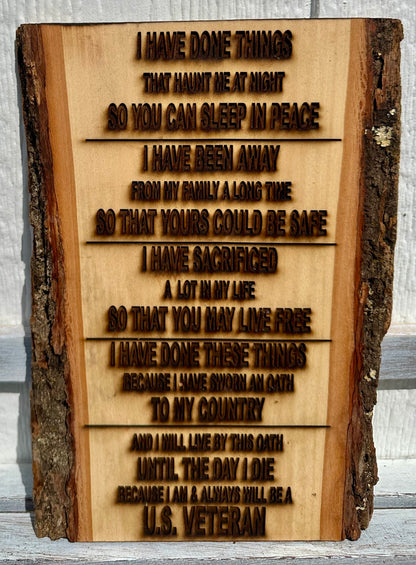 I HAVE DONE THINGS
THAT HAUNT ME AT NIGHT
SO YOU CAN SLEEP IN PEACE
I HAVE BEEN AWAY
FROM MY FAMILY A LONG TIME
SO THAT YOURS COULD BE SAFE
I HAVE SACRIFICED
A LOT IN MY LIFE
SO THAT YOU MAY LIVE FREE
I HAVE DONE THESE THINGS
BECAUSE I HAVE SWORN AN OATH
TO MY COUNTRY
AND I WILL LIVE BY THIS OATH
UNTIL THE DAY I DIE
BECAUSE I AM & ALWAYS WILL BE A
U.S. VETERAN